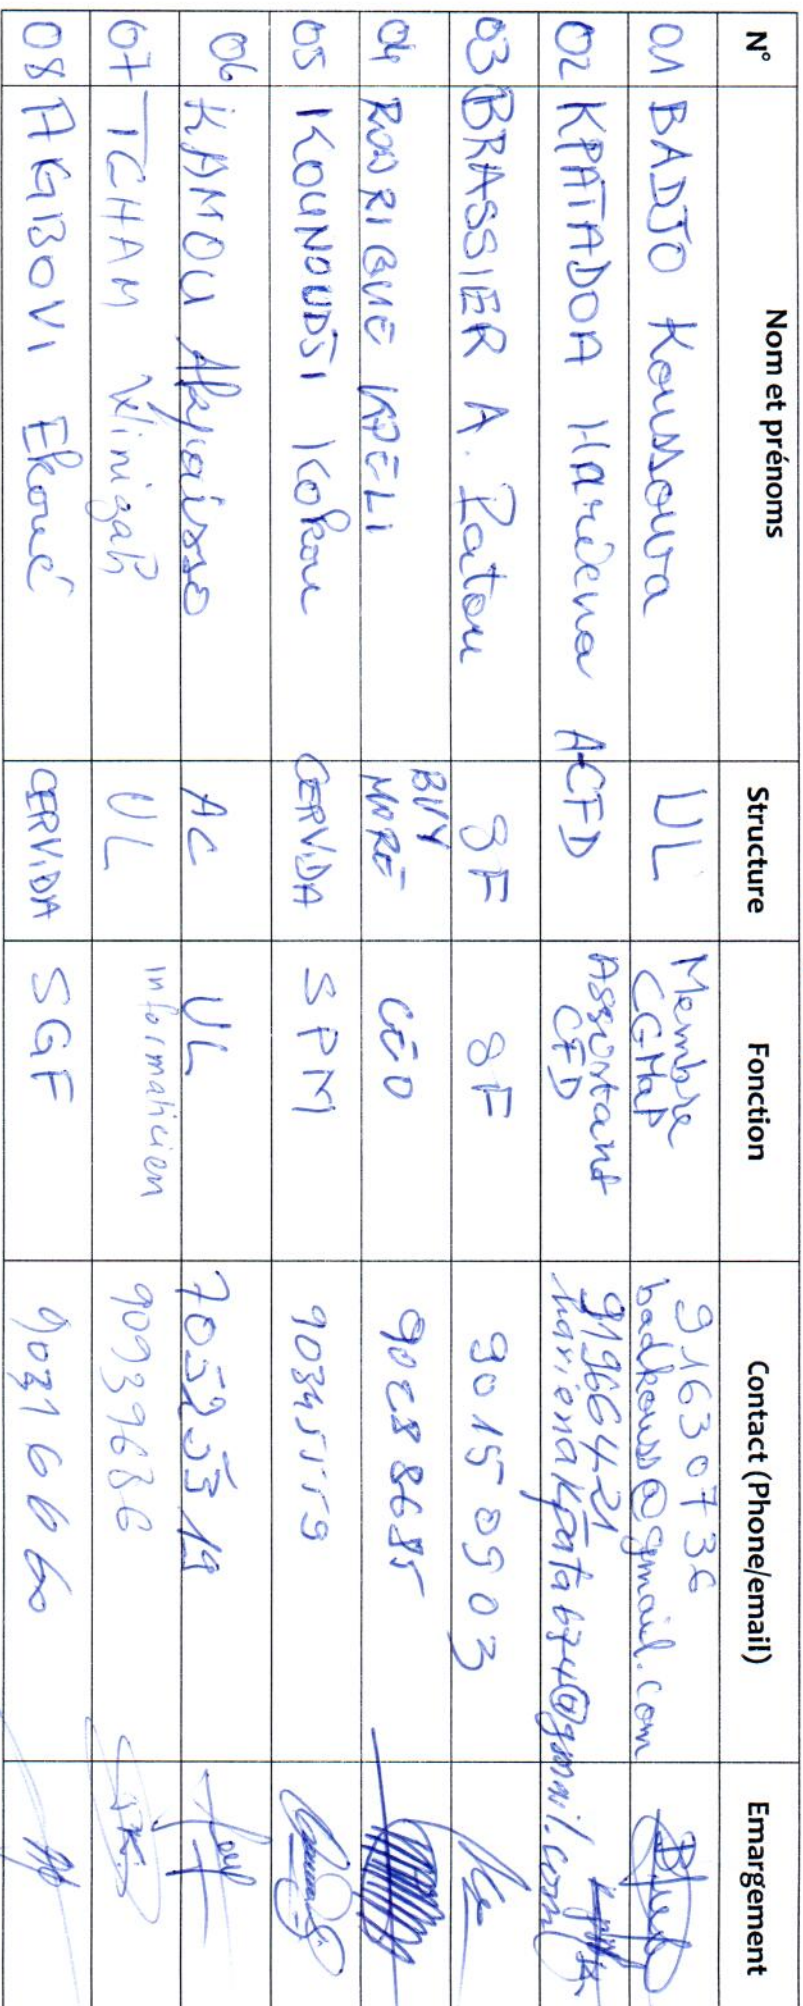 N° Nom et prénoms Structure Fonction Contact (Phone/email) Emargement
01 BADJO Koussouwa UL Membre CGMaP 91630736 badkouss@gmail.com
02 KPATADOA Hariéna ACFD Assistant CFD 91966421 harienakpata674@gmail.com
03 BRASSIER A. Patou SF SF 90150903
04 RODRIGUE KPELI MORE CEO 90288685
05 KOUNOUDJI Kokou CERVIDA SPM 90345559
06 KAMOU AC UL 70525319
07 TCHAM UL Informaticien 90939686
08 AGBOVI Ekoué CERVIDA SGF 90316660